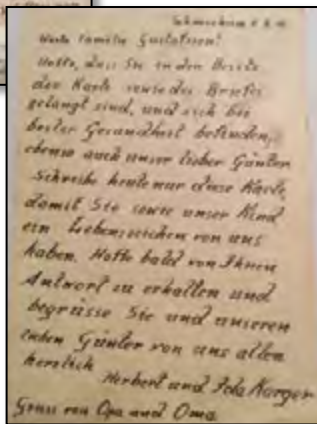 Werte Familie Gustafsson!
Hoffe, dass Sie in den Besitz
der Karte sowie des Briefes
gelangt sind, und sich bei
bester Gesundheit befinden,
ebenso auch unser lieber Günter
Schreibe heute nur diese Karte,
damit Sie sowie unser Kind
ein Lebenszeichen von uns
haben. Hoffe bald von Ihnen
Antwort zu erhalten und
begrüsse Sie und unseren
lieben Günter von uns allen
herzlich
Herbert und Karger
Gruss von Opa und Oma.